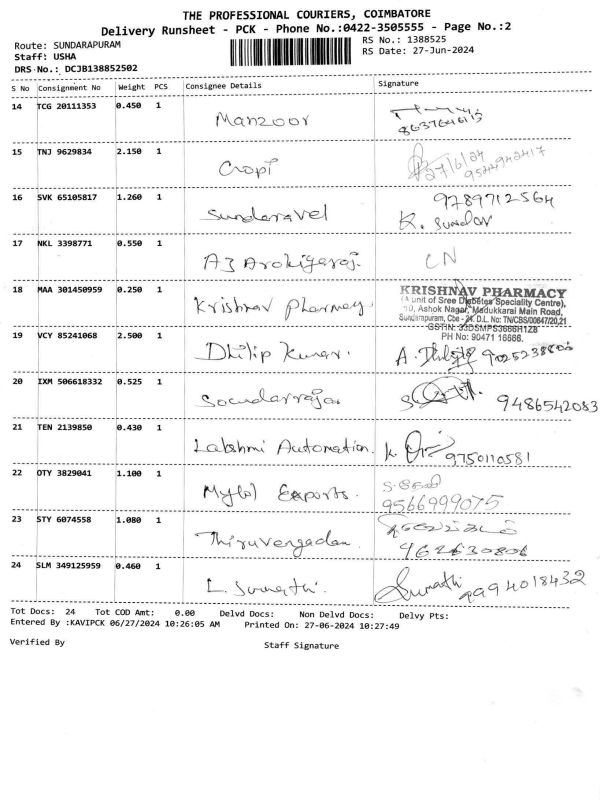 THE PROFESSIONAL COURIERS, COIMBATORE
Delivery Runsheet - PCK - Phone No.:0422-3505555 - Page No.:2
Route: SUNDARAPURAM
RS No.: 1388525
Staff: USHA
RS Date: 27-Jun-2024
DRS No.: DCJB138852502
S No Consignment No Weight PCS Consignee Details Signature
14 TCG 20111353 0.450 1 Manzoor
15 TNJ 9629834 2.150 1 Gopi 27/6/24
9544942417
16 SVK 65105817 1.260 1 Sundaravel 9789712564
K. Sundar
17 NKL 3398771 0.550 1 A3 Arokiyaraj. CN
18 MAA 301450959 0.250 1 Krishnav Pharmacy
KRISHNAV PHARMACY
(A unit of Sree Diabetes Speciality Centre),
10, Ashok Nagar, Madukkarai Main Road,
Sundarapuram, Cbe - 24. D.L. No: TN/CBS/00647/20,21
GSTIN: 33DSMPS3666H1Z8
PH No: 90471 16666.
19 VCY 85241068 2.500 1 Dhilip Kumar. A.
20 IXM 506618332 0.525 1 Soundarrajan 9486542083
21 TEN 2139850 0.430 1 Lakshmi Automation. K. 9750110581
22 OTY 3829041 1.100 1 Mylol Exports. 9566999075
23 STY 6074558 1.080 1 Thiruvengadam.
24 SLM 349125959 0.460 1 L. Sumathi. Sumathi 9994018432
Tot Docs: 24 Tot COD Amt: 0.00 Delvd Docs: Non Delvd Docs: Delvy Pts:
Entered By :KAVIPCK 06/27/2024 10:26:05 AM Printed On: 27-06-2024 10:27:49
Verified By Staff Signature